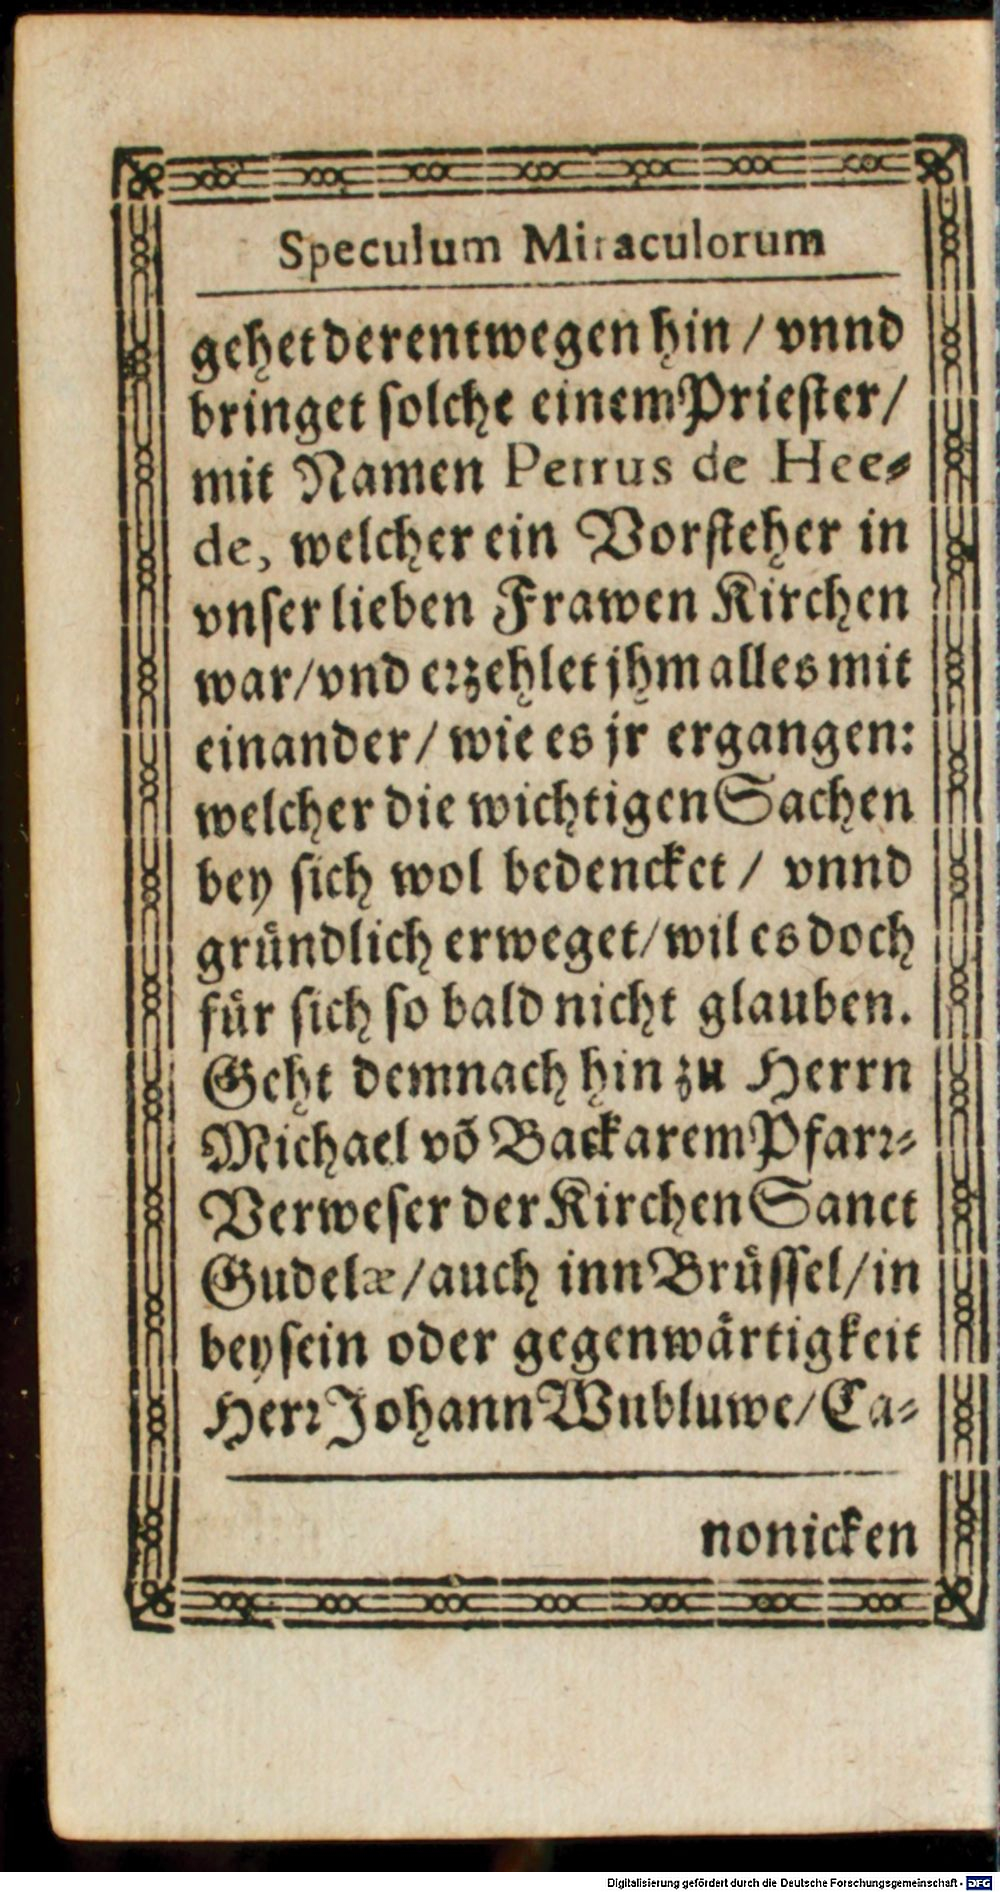 Speculum Miraculorum
gehet derentwegen hin / vnnd
bringet solche einem Priester /
mit Namen Petrus de Hee-
de, welcher ein Vorsteher in
vnser lieben Frawen Kirchen
war / vnd erzehlet jhm alles mit
einander / wie es jr ergangen:
welcher die wichtigen Sachen
bey sich wol bedencket / vnnd
gründlich erweget / wil es doch
für sich so bald nicht glauben.
Geht demnach hin zu Herrn
Michael võ Backarem Pfarr-
Verweser der Kirchen Sanct
Gudelæ / auch inn Brüssel / in
beysein oder gegenwärtigkeit
Herr Johann Wubluwe / Ca-
nonicken
Digitalisierung gefördert durch die Deutsche Forschungsgemeinschaft - DFG